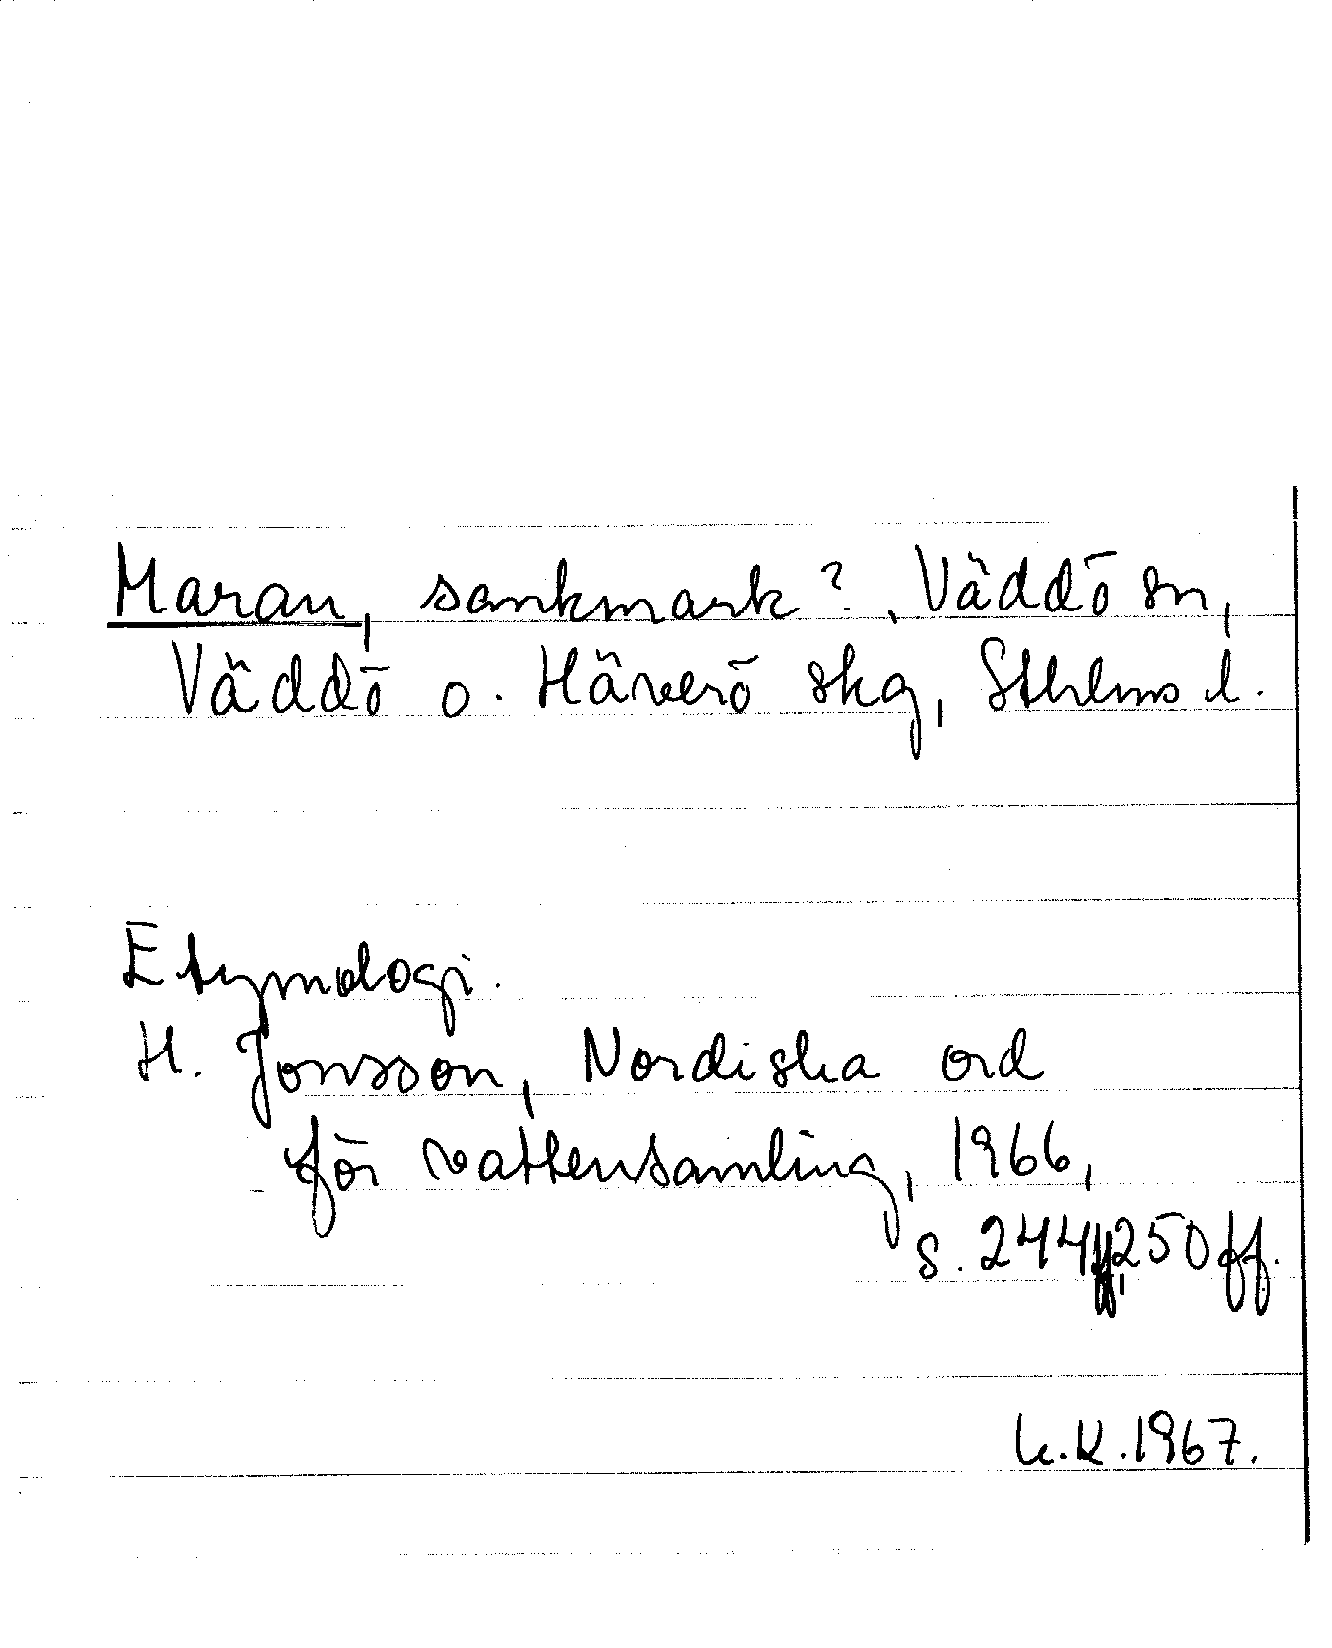 Maran, sankmark?, Väddö sn,
Väddö o. Häverö skg, Sthlms l.
Etymologi.
H. Jonsson, Nordiska ord
för vattensamling, 1966,
s. 244ff, 250ff.
K.K. 1967.